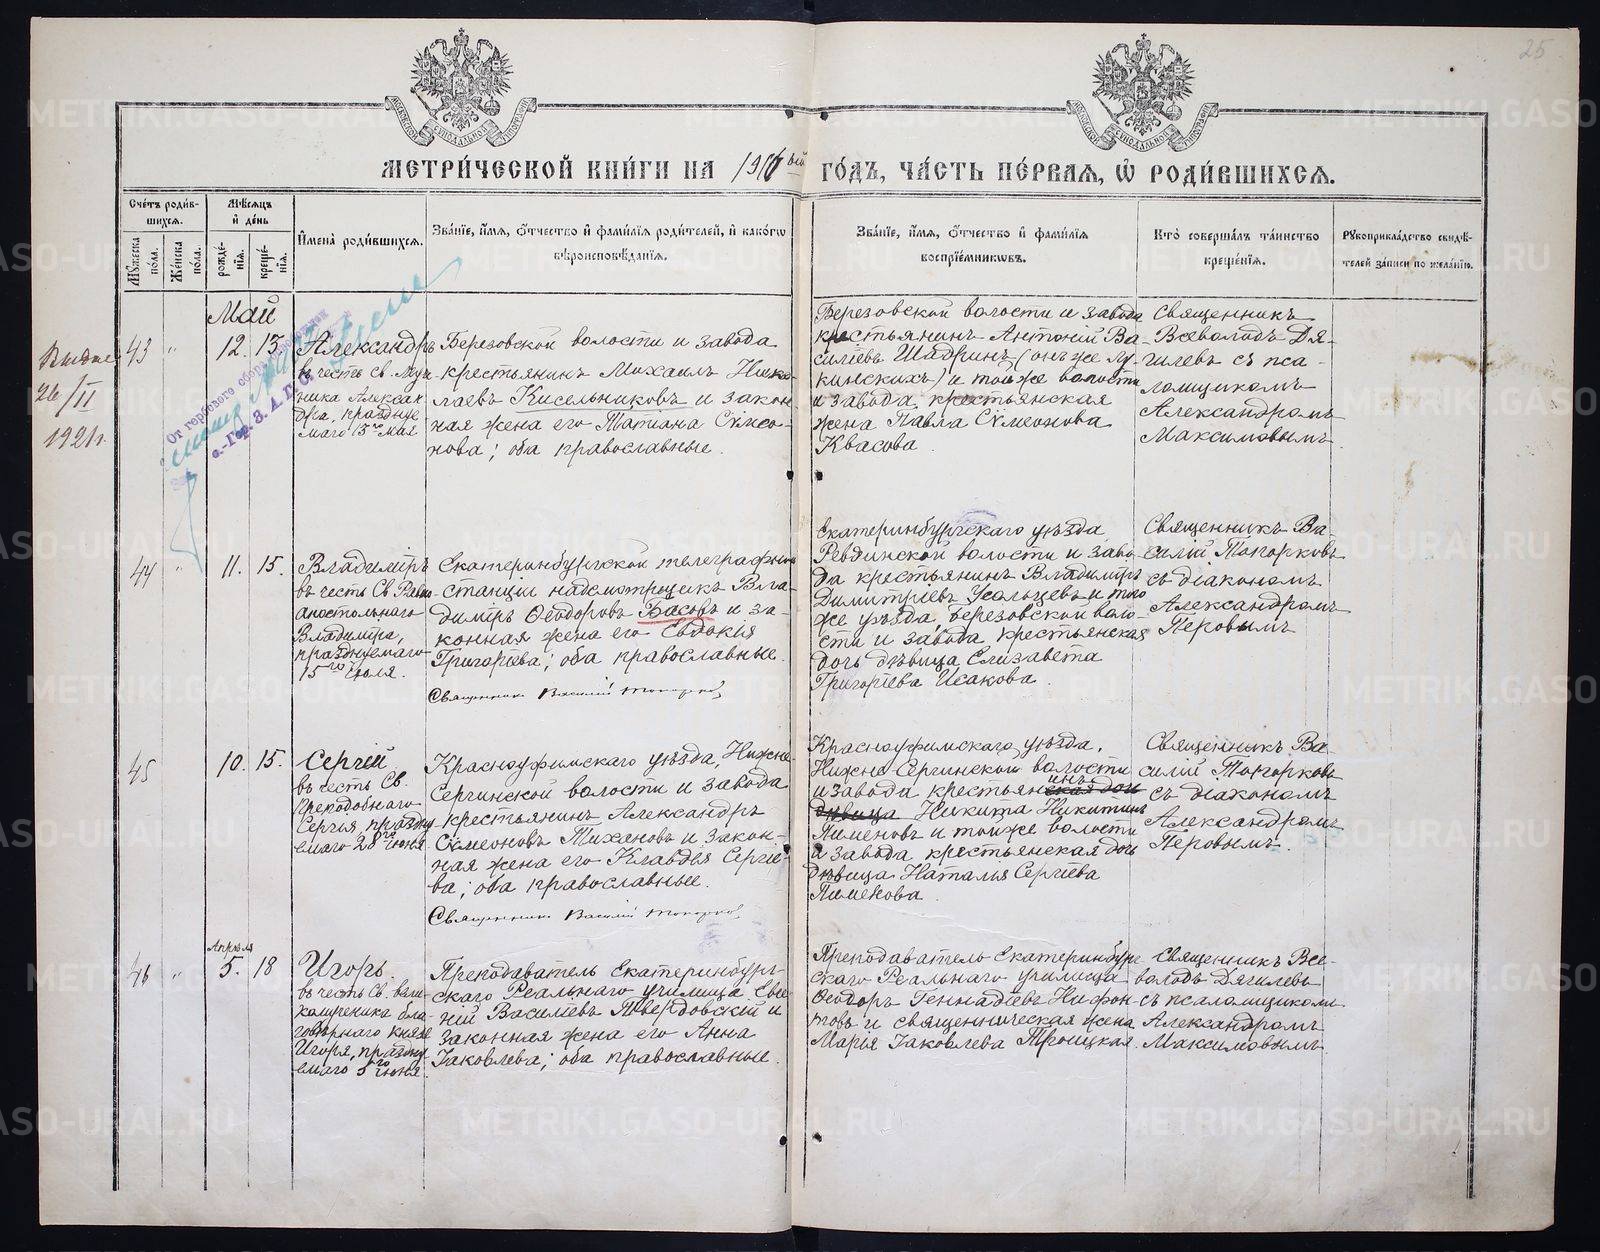 25
МОСКОВСКОЙ СУНОДАЛЬНОЙ ТИПОГРАФІИ
МОСКОВСКОЙ СУНОДАЛЬНОЙ ТИПОГРАФІИ
МЕТРИ́ЧЕСКОЙ КНИ́ГИ НА 1916ый ГО́ДЪ, ЧА́СТЬ ПЕ́РВАЯ, Ѽ РОДИ́ВШИХСЯ.
Сче́тъ роди́в-
шихся.
Му́жеска по́ла.
Же́нска по́ла.
Мѣ́сяцъ и҆ де́нь
рожде́-
нїя.
креще́-
нїя.
И҆мена̀ роди́вшихся.
Зва́нїе, и҆́мя, ѻ҆́тчество и҆ фами́лїя роди́телей, и҆ како́гѡ
вѣроисповѣ́данїя.
Зва́нїе, и҆́мя, ѻ҆́тчество и҆ фами́лїя
воспрїе́мникѡвъ.
Кто̀ соверша́лъ та́инство
креще́нїя.
Рꙋкоприкла́дство свидѣ́-
телей за́писи по жела́нїю.
Май
26/II
1921г.
43 " 12. 13.
Александръ
въ честь св. Муче-
ника Алексан
дра, праздну-
емаго 13го Мая
Березовской волости и завода
крестьянинъ Михаилъ Нико-
лаевъ Кисельниковъ и закон
ная жена его Татіана Симео-
нова; оба православные.
Березовской волости и завода
крестьянинъ Антоній Ва-
силіевъ Шадринъ (онъ же Лу-
кинскихъ) и той же волости
и завода крестьянская
жена Павла Симеонова
Квасова
Священникъ
Всеволодъ Дя-
гилевъ съ пса-
ломщикомъ
Александромъ
Максимовымъ
От гербового сбора
44 " 11. 15.
Владиміръ
въ честь Св Равно-
апостольнаго
Владиміра,
празднуемаго
15го іюля.
Екатеринбургской телеграфной
станціи надсмотрщикъ Вла-
диміръ Ѳеодоровъ Басовъ и за-
конная жена его Евдокія
Григоріева; оба православные.
Священникъ Василій Топорковъ
Екатеринбургскаго уѣзда
Ревдинской волости и заво
да крестьянинъ Владиміръ
Димитріевъ Усольцевъ и того
же уѣзда, Березовской воло-
сти и завода крестьянская
дочь дѣвица Елизавета
Григоріева Исакова.
Священникъ Ва-
силій Топорковъ
съ діакономъ
Александромъ
Перовымъ
45 10. 15.
Сергій
въ честь Св.
Преподобнаго
Сергія, праздну
емаго 28го іюня
Красноуфимскаго уѣзда, Нижне-
Сергинской волости и завода
крестьянинъ Александръ
Симеоновъ Тихановъ и закон-
ная жена его Клавдія Сергіе-
ва; оба православные.
Священникъ Василій Топорковъ
Красноуфимскаго уѣзда,
Нижне-Сергинской волости
и завода крестьянинъ ская дочь
дѣвица Никита Никитинъ
Пименовъ и той же волости
и завода крестьянская дочь
дѣвица Наталья Сергіева
Пименова
Священникъ Ва-
силій Топорковъ
съ діакономъ
Александромъ
Перовымъ.
Апрѣля
46 " 5. 18
Игорь.
въ честь Св. вели-
комученика бла
говѣрнаго князя
Игоря, праздну
емаго 5го іюня.
Преподаватель Екатеринбург-
скаго Реальнаго училища Евге
ній Василіевъ Твердовскій и
законная жена его Анна
Іаковлева; оба православные.
Преподаватель Екатеринбург
скаго Реальнаго училища
Ѳеодоръ Геннадіевъ Нифон
товъ и священническая жена
Марія Іаковлева Троицкая.
Священникъ Все-
володъ Дягилевъ
съ псаломщикомъ
Александромъ
Максимовымъ.
METRIKI.GASO-URAL.RU